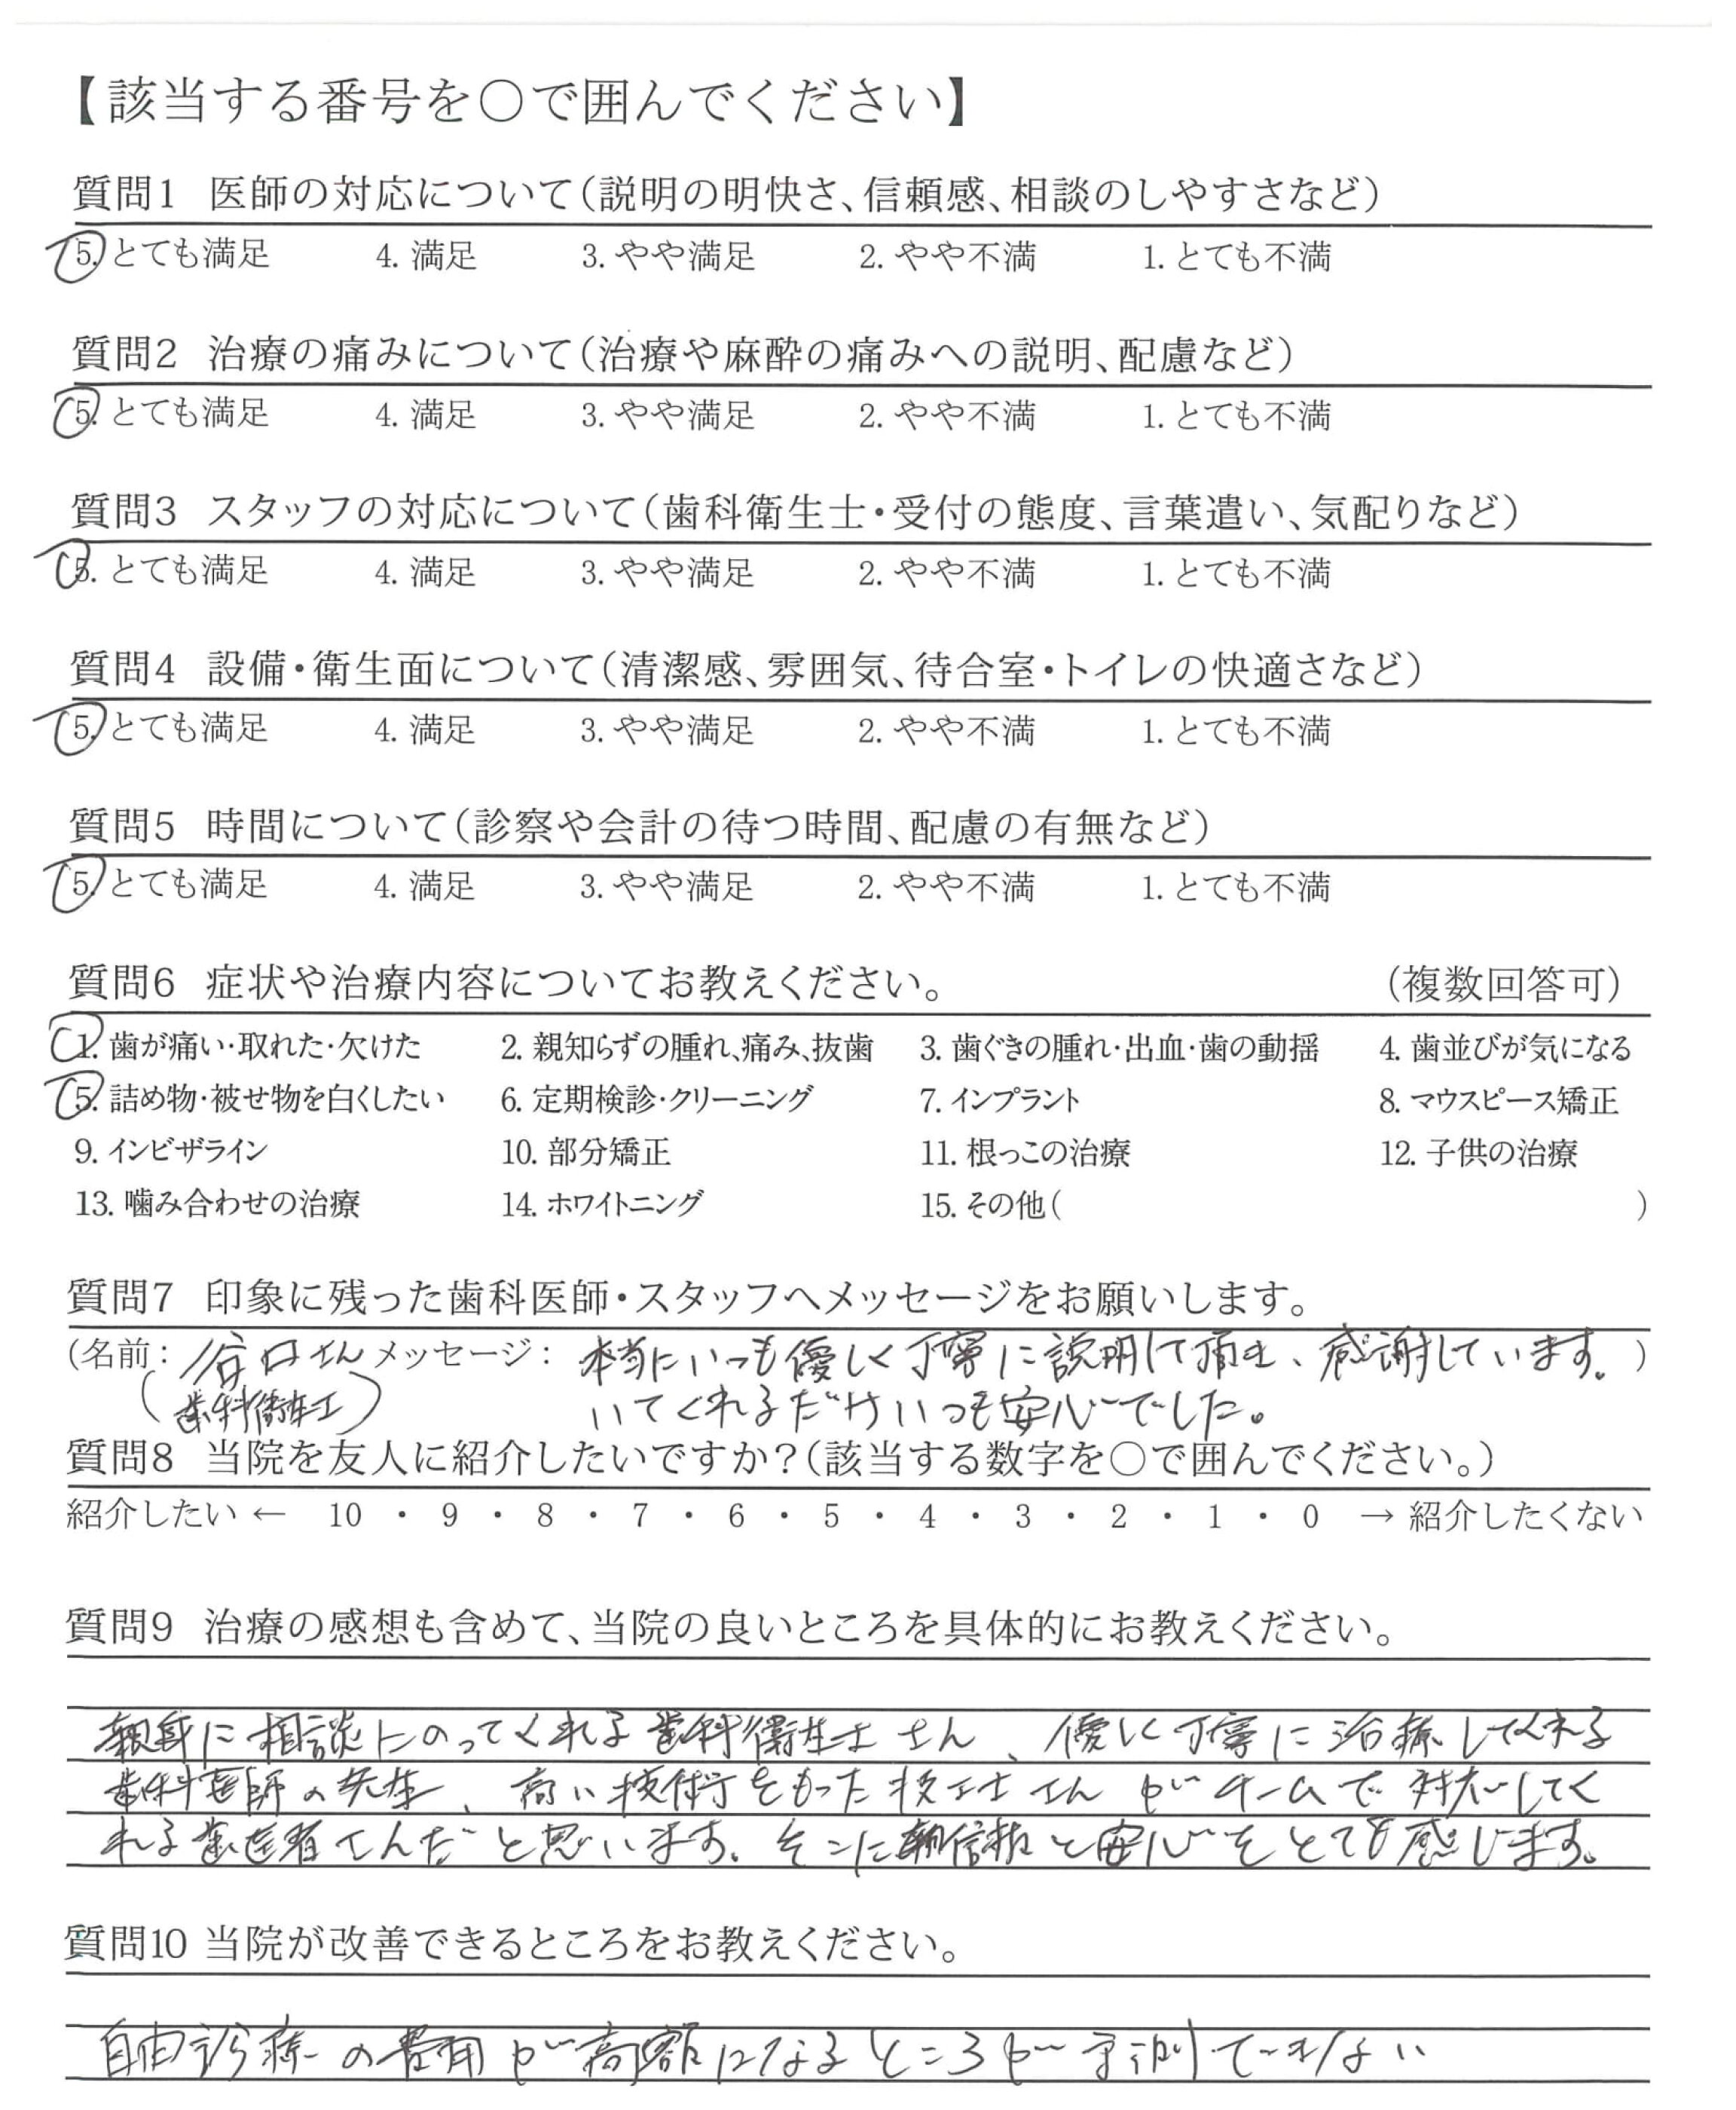 【該当する番号を○で囲んでください】
質問1 医師の対応について(説明の明快さ、信頼感、相談のしやすさなど)
5. とても満足 4. 満足 3. やや満足 2. やや不満 1. とても不満
質問2 治療の痛みについて(治療や麻酔の痛みへの説明、配慮など)
5. とても満足 4. 満足 3. やや満足 2. やや不満 1. とても不満
質問3 スタッフの対応について(歯科衛生士・受付の態度、言葉遣い、気配りなど)
5. とても満足 4. 満足 3. やや満足 2. やや不満 1. とても不満
質問4 設備・衛生面について(清潔感、雰囲気、待合室・トイレの快適さなど)
5. とても満足 4. 満足 3. やや満足 2. やや不満 1. とても不満
質問5 時間について(診察や会計の待つ時間、配慮の有無など)
5. とても満足 4. 満足 3. やや満足 2. やや不満 1. とても不満
質問6 症状や治療内容についてお教えください。 (複数回答可)
1. 歯が痛い・取れた・欠けた 2. 親知らずの腫れ、痛み、抜歯 3. 歯ぐきの腫れ・出血・歯の動揺 4. 歯並びが気になる
5. 詰め物・被せ物を白くしたい 6. 定期検診・クリーニング 7. インプラント 8. マウスピース矯正
9. インビザライン 10. 部分矯正 11. 根っこの治療 12. 子供の治療
13. 噛み合わせの治療 14. ホワイトニング 15. その他( )
質問7 印象に残った歯科医師・スタッフへメッセージをお願いします。
(名前: 谷口さん メッセージ: 本当にいつも優しく丁寧に説明して頂き、感謝しています。)
(歯科衛生士) いてくれるだけいつも安心でした。
質問8 当院を友人に紹介したいですか?(該当する数字を○で囲んでください。)
紹介したい ← 10 ・ 9 ・ 8 ・ 7 ・ 6 ・ 5 ・ 4 ・ 3 ・ 2 ・ 1 ・ 0 → 紹介したくない
質問9 治療の感想も含めて、当院の良いところを具体的にお教えください。
親身に相談にのってくれる歯科衛生士さん、優しく丁寧に治療してくれる
歯科医師の先生、高い技術をもった技工士さんがチームで対応してく
れる歯医者さんだと思います。そこに信頼と安心をとても感じます。
質問10 当院が改善できるところをお教えください。
自由診療の費用が高額になるところが予測できない